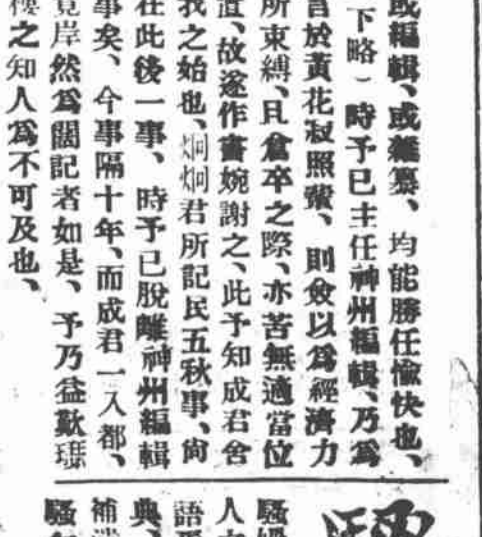 或編輯、或雜纂、均能勝任愉快也、
下略）時予已主任神州編輯、乃爲
言於黃花叔照輩、則僉以爲經濟力
所束縛、且倉卒之際、亦苦無適當位
置、故遂作書婉謝之、此予知成君舍
我之始也、炯炯君所記民五秋事、尙
在此後一事、時予已脫離神州編輯
事矣、今事隔十年、而成君一入都、
竟岸然爲闊記者如是、予乃益歎璡
樓之知人爲不可及也、
騷
人
語
典、
補
騷